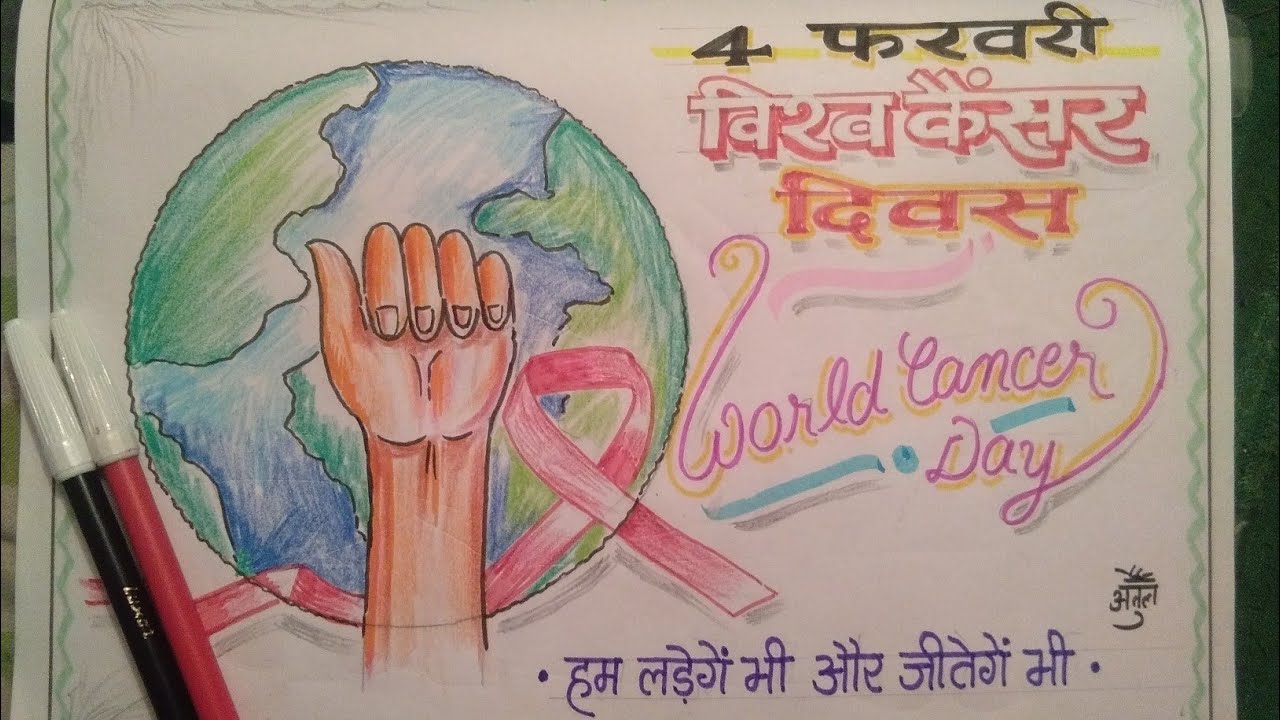 4 फरवरी
विश्व कैंसर
दिवस
World Cancer
Day
अतुल
• हम लड़ेगें भी और जीतेगें भी •
luxor